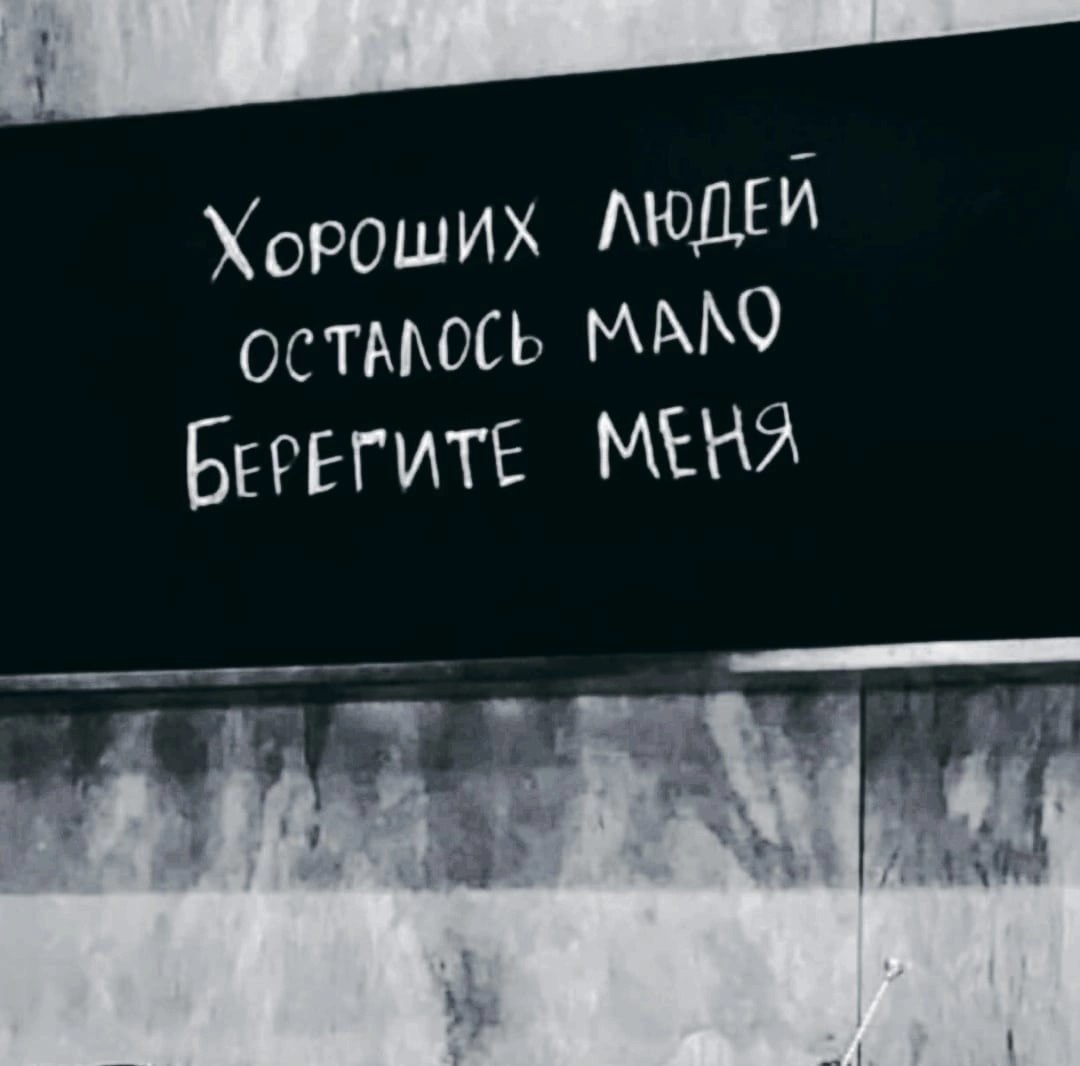 Хороших людей
осталось мало
Берегите меня